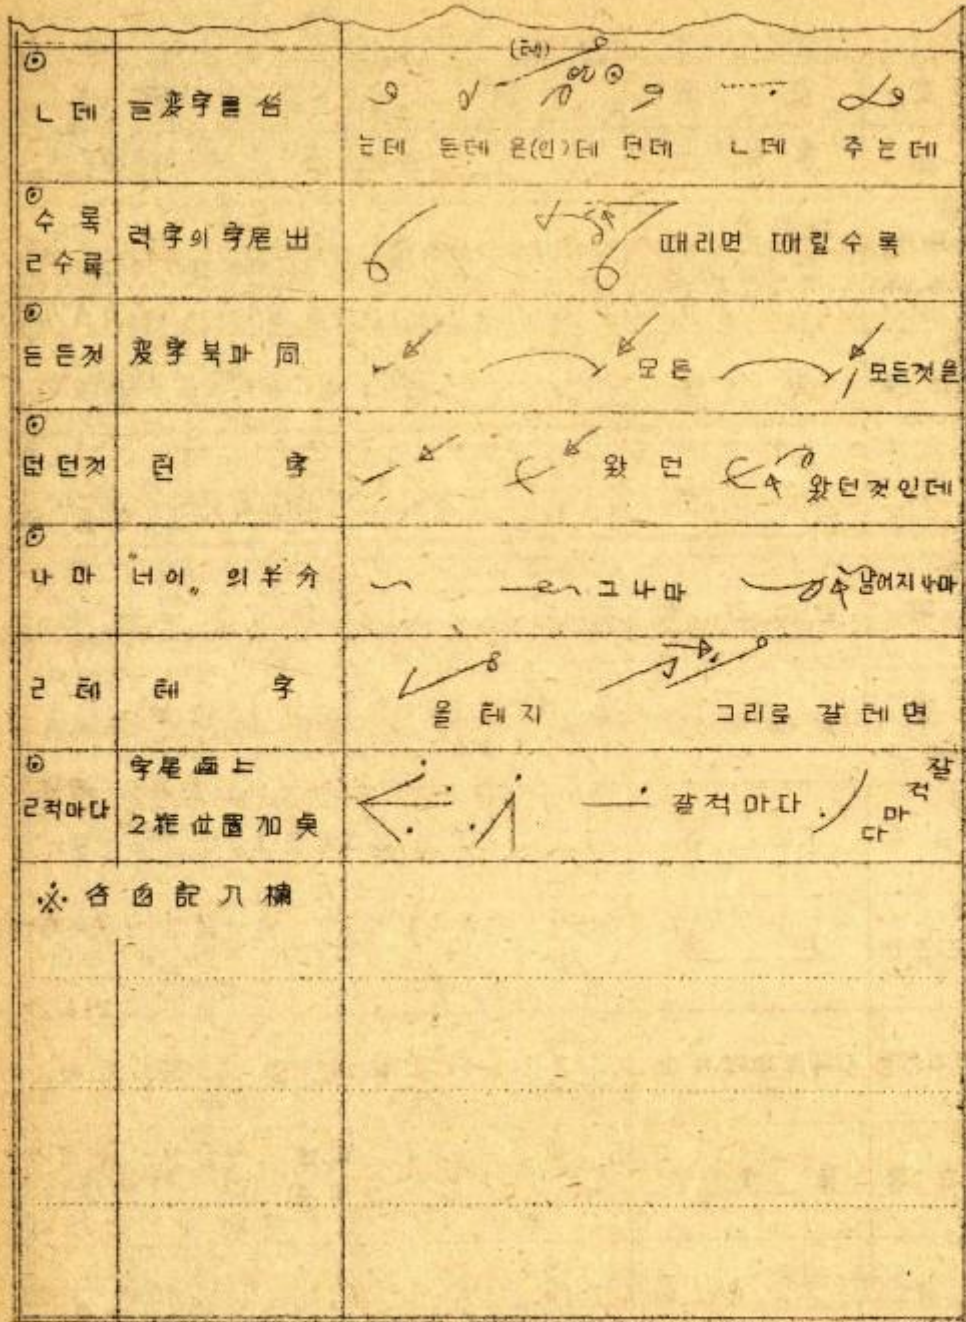 (테)
ㄴ데 는変字를 省
는데 든데 은(인)데 던데 ㄴ데 주는데
수록
ㄹ수록
력字의 字尾出
때리면 때릴수록
든 든것 変字 북과 同
모든 모든것을
던 던것 런 字
왔던 왔던것인데
나마 "너이" 의 半分
그나마
ㄹ테 테 字
올테지 그리로 갈테면
ㄹ적마다
字尾画上
2.5 位置加点
갈적마다
잘적마다
※ 各自記入欄